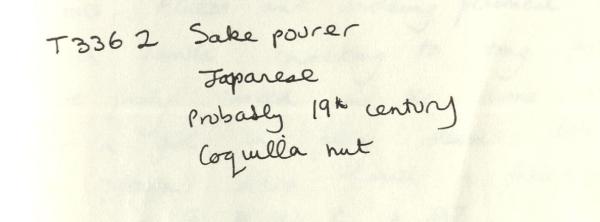 T336 2 Sake pourer
Japanese
Probably 19th century
Coquilla nut